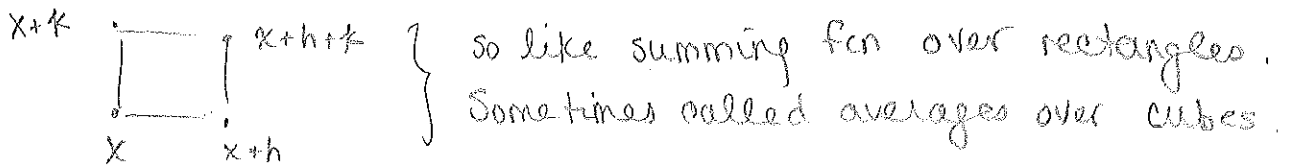 x+k
x+h+k
so like summing fcn over rectangles.
Sometimes called averages over cubes.
x
x+h